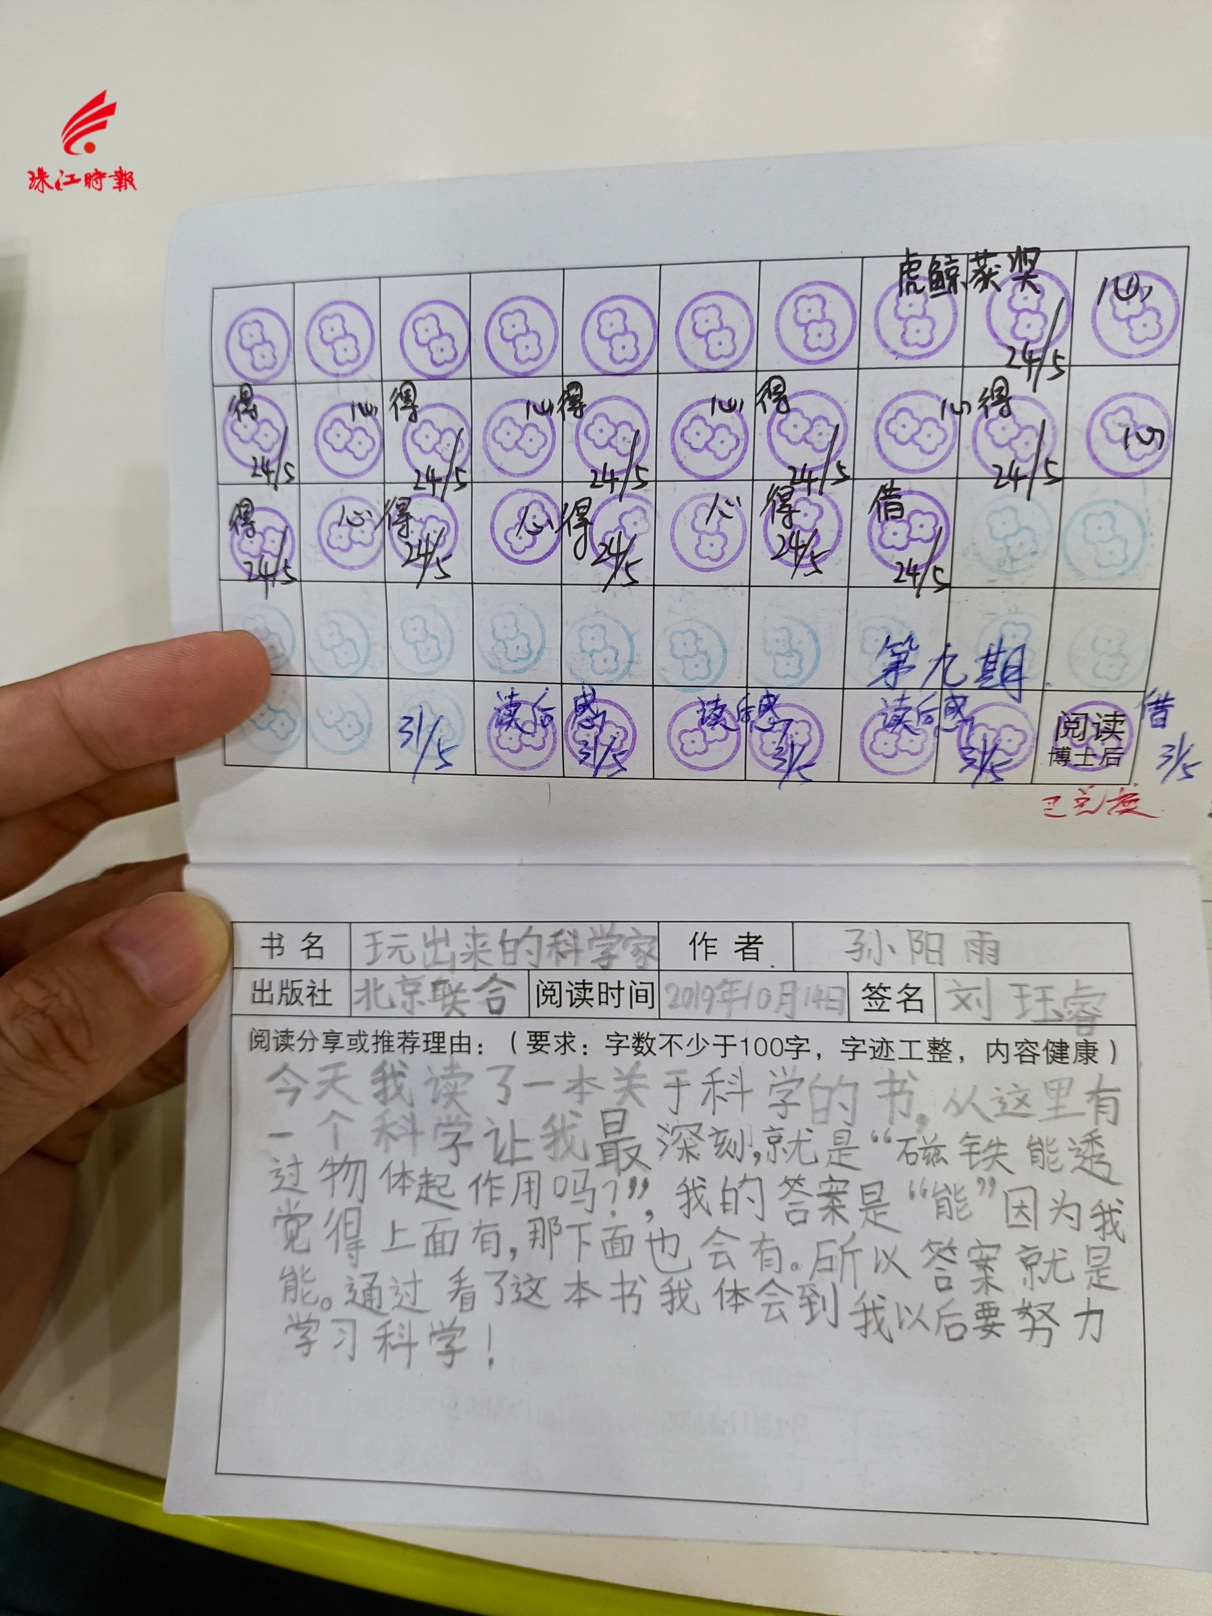 珠江時報
虎鲸获奖
24/5
心
得 心 得 心 得 心 得 心 得 心
24/5 24/5 24/5 24/5 24/5
得 心 得 心 得 心 得 借
24/5 24/5 24/5 24/5 24/5
第九期
31/5 读后感 读后感 读后感 阅读 借
31/5 31/5 31/5 博士后 31/5
已兑换
书名 玩出来的科学家 作者 孙阳雨
出版社 北京联合 阅读时间 2019年10月14日 签名 刘珏睿
阅读分享或推荐理由：（要求：字数不少于100字，字迹工整，内容健康）
今天我读了一本关于科学的书。从这里有
一个科学让我最深刻，就是“磁铁能透
过物体起作用吗？”，我的答案是“能”因为我
觉得上面有，那下面也会有。所以答案就是
能。通过看了这本书我体会到我以后要努力
学习科学！